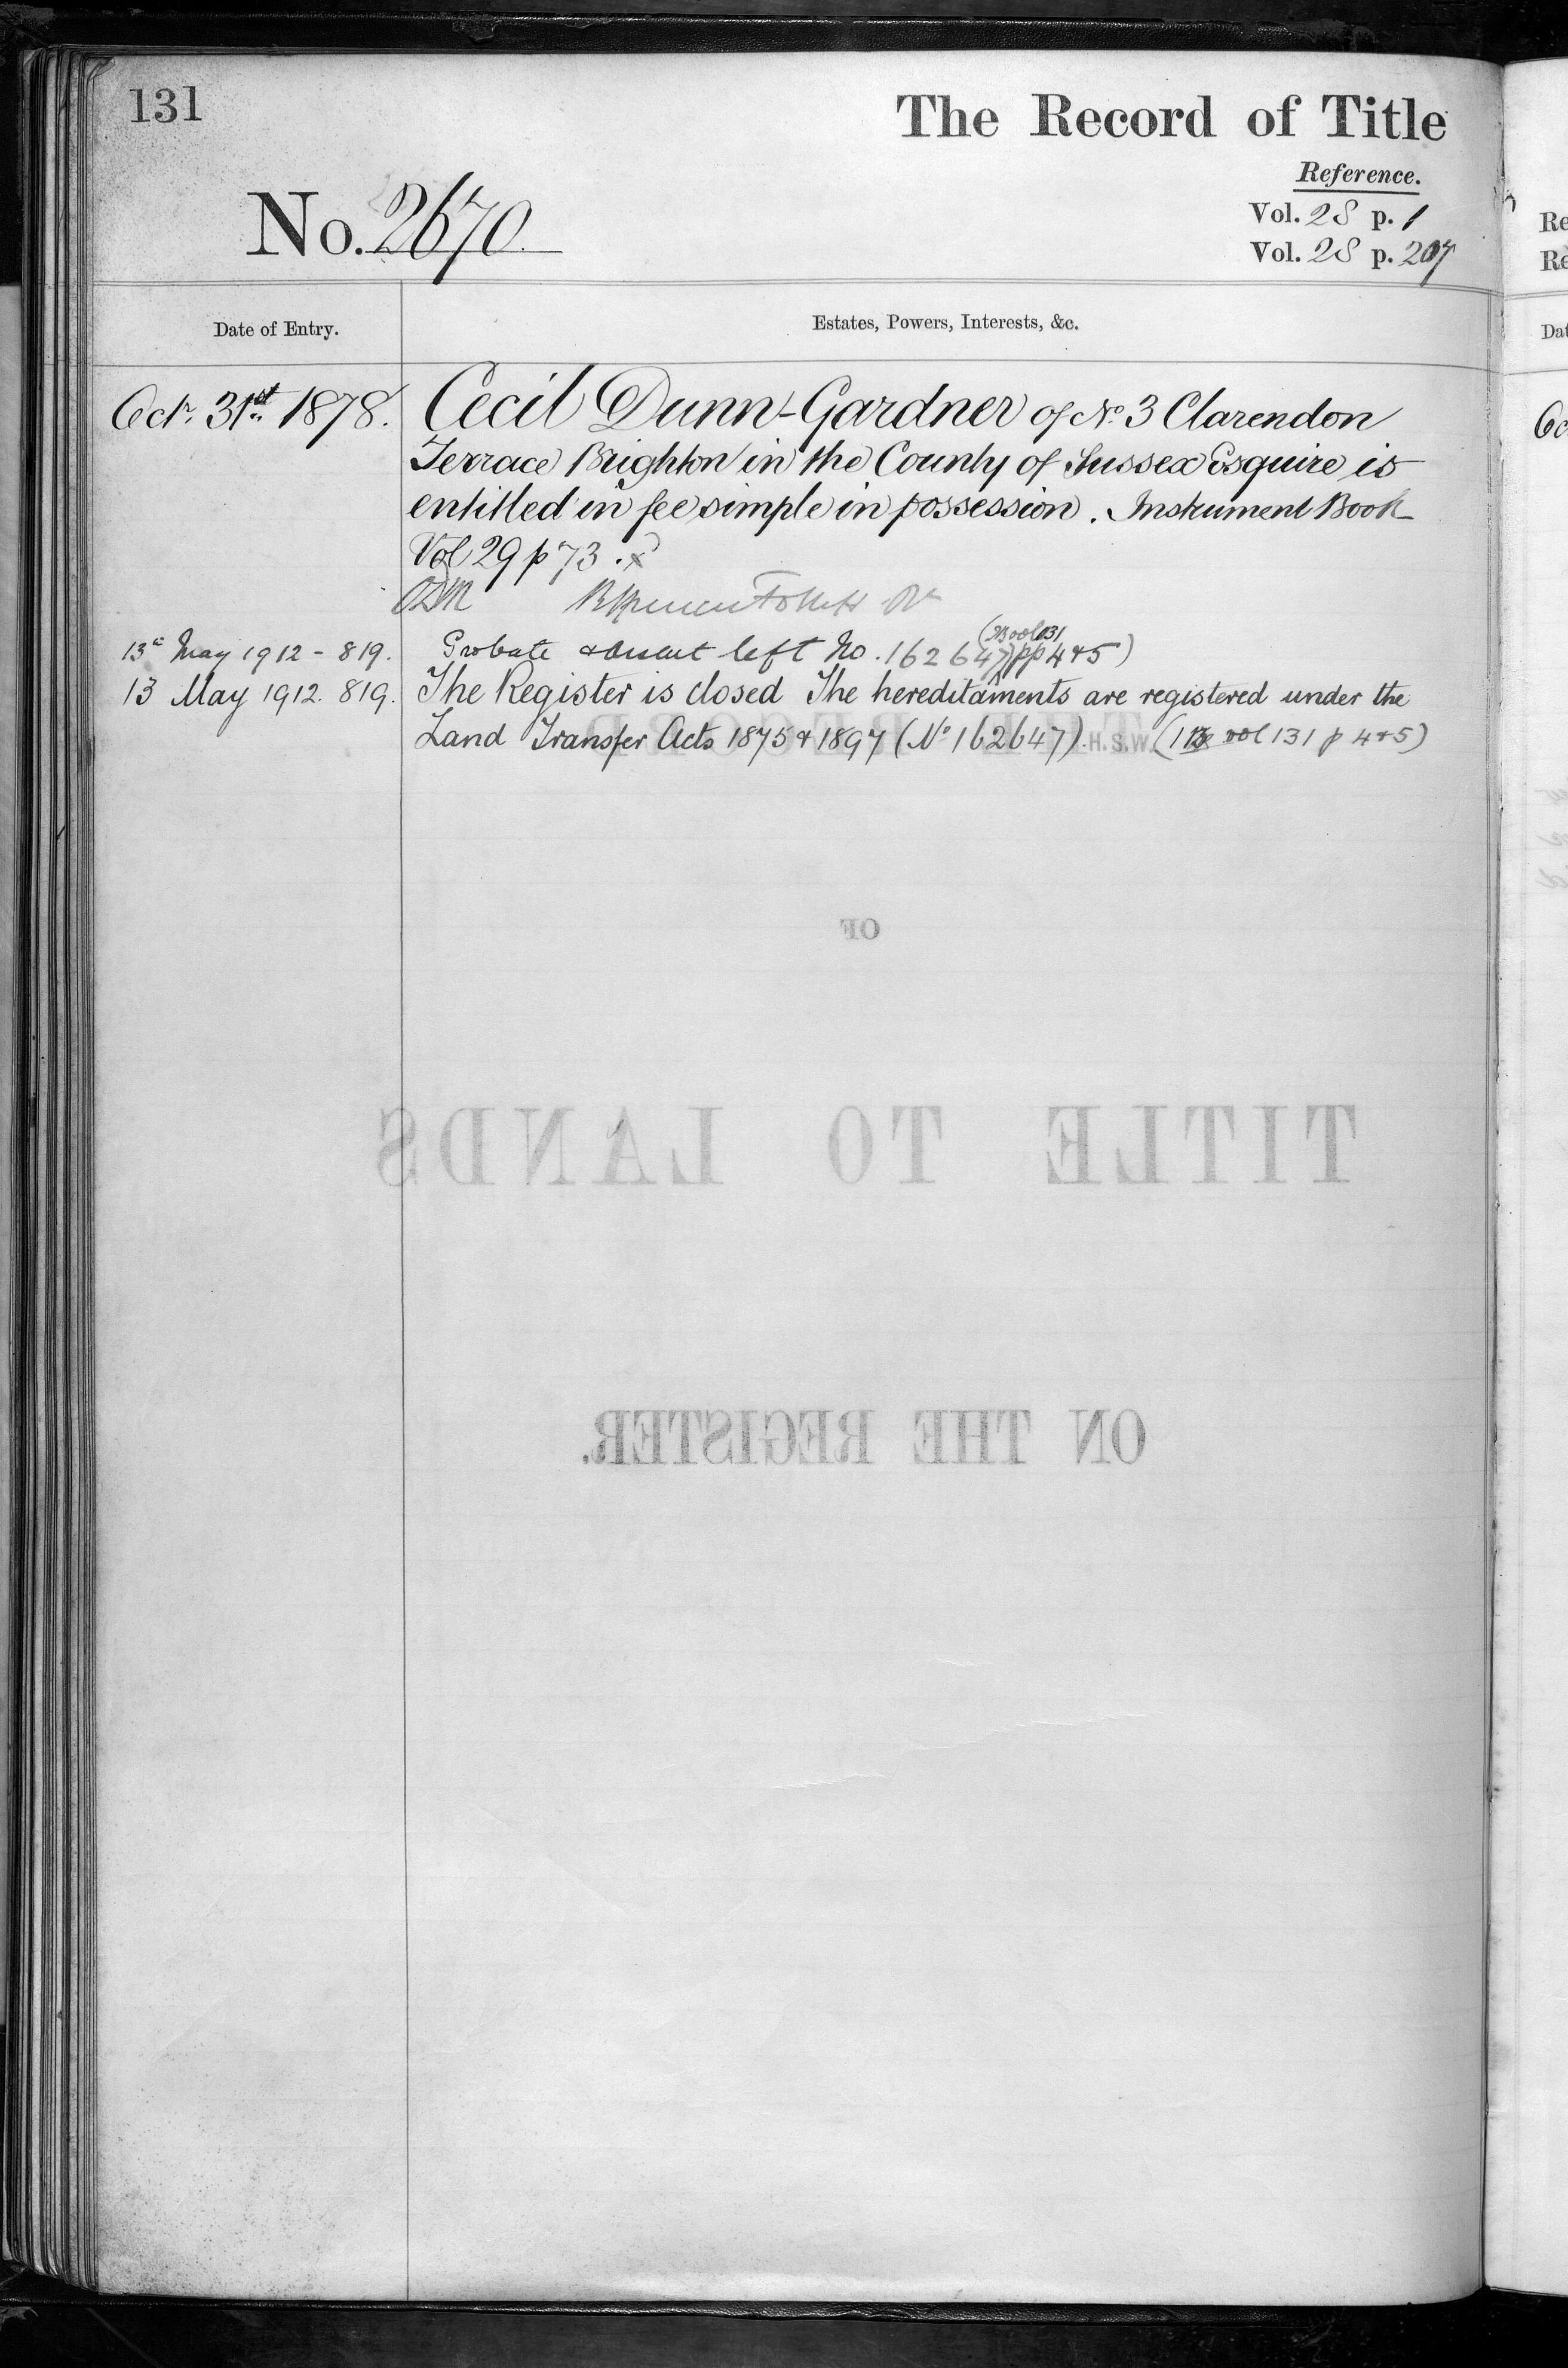 131
The Record of Title
Reference.
No. 2670
Vol. 28 p. 1
Vol. 28 p. 207
Date of Entry.
Estates, Powers, Interests, &c.
Octr. 31st. 1878.
Cecil Dunn-Gardner of No. 3 Clarendon
Terrace Brighton in the County of Sussex Esquire is
entitled in fee simple in possession. Instrument Book
Vol 29 p 73.
(IB vol 131
13th May 1912 - 819.
Probate & assent left No. 162647 pp 4 & 5)
13 May 1912. 819.
The Register is closed The hereditaments are registered under the
Land Transfer Acts 1875 & 1897 (No 162647). H.S.W. vol 131 p 4 & 5)
OF
TITLE TO LANDS
ON THE REGISTER.